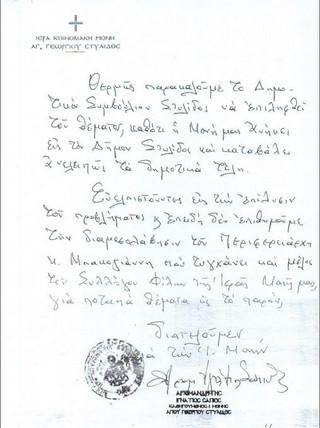 ΙΕΡΑ ΚΟΙΝΟΒΙΑΚΗ ΜΟΝΗ
ΑΓ. ΓΕΩΡΓΙΟΥ ΣΤΥΛΙΔΟΣ
Θερμῶς παρακαλοῦμε τὸ Δημο-
τικὸ Συμβούλιον Στυλίδος νὰ ἐπιληφθεῖ
τοῦ θέματος, καθότι ἡ Μονή μας ἀνήκει
εἰς τὸν Δῆμον Στυλίδος καὶ καταβάλει
ἀνελλιπῶς τὰ δημοτικὰ τέλη.
Εὐελπιστοῦντες εἰς τὴν ἐπίλυσιν
τοῦ προβλήματος κ ἐπειδὴ δὲν ἐπιθυμοῦμε
τὴν διαμεσολάβησιν τοῦ Περιφερειάρχη
κ. Μπακογιάννη ποὺ τυγχάνει καὶ μέλος
τοῦ Συλλόγου Φίλων τῆς Ἱερᾶς Μονῆς μας,
γιὰ ποταπὰ θέματα ὡς τὸ παρόν,
διατελοῦμεν
διὰ τὴν Ἱ. Μονὴν
ΑΡΧΙΜΑΝΔΡΙΤΗΣ
ΙΓΝΑΤΙΟΣ ΣΑΠΙΟΣ
ΚΑΘΗΓΟΥΜΕΝΟΣ Ι ΜΟΝΗΣ
ΑΓΙΟΥ ΓΕΩΡΓΙΟΥ ΣΤΥΛΙΔΟΣ